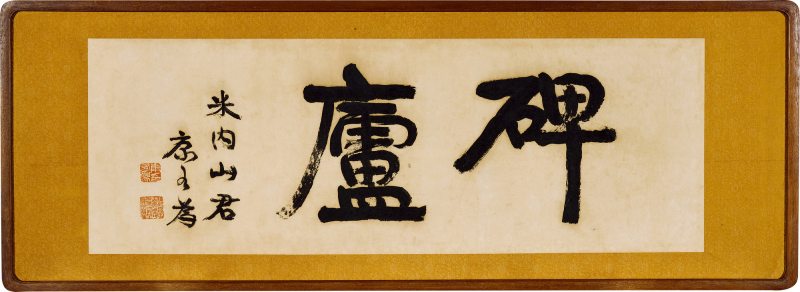 碑廬
米内山君
康有為